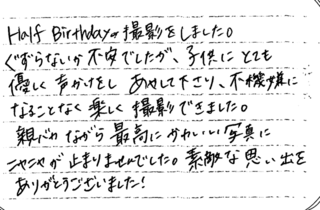 Half Birthdayの撮影をしました。
ぐずらないか不安でしたが、子供にとても
優しく声かけをしあやして下さり、不機嫌に
なることなく楽しく撮影できました。
親バカながら最高にかわいい写真に
ニヤニヤが止まりませんでした。素敵な思い出を
ありがとうございました!